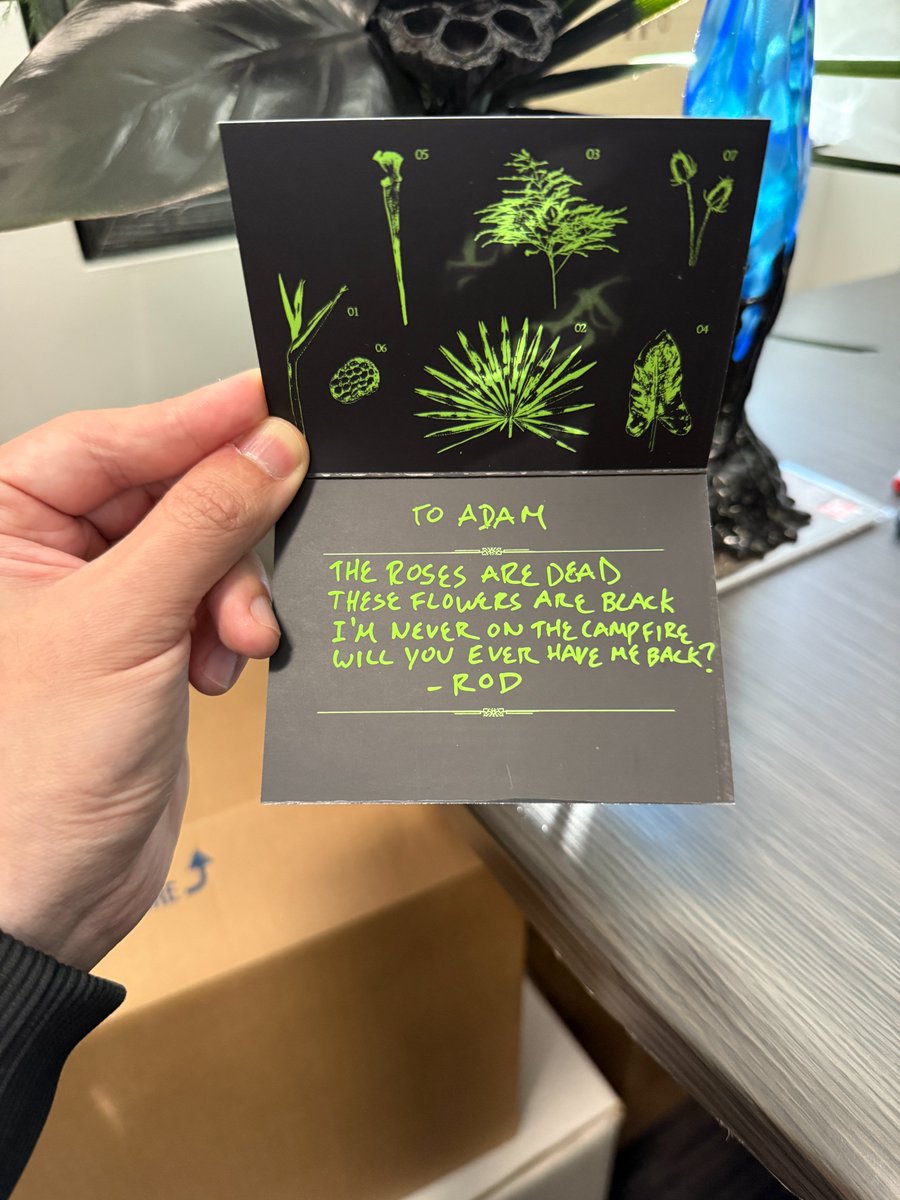 05
03
07
01
06
02
04
TO ADAM
THE ROSES ARE DEAD
THESE FLOWERS ARE BLACK
I'M NEVER ON THE CAMPFIRE
WILL YOU EVER HAVE ME BACK?
- ROD